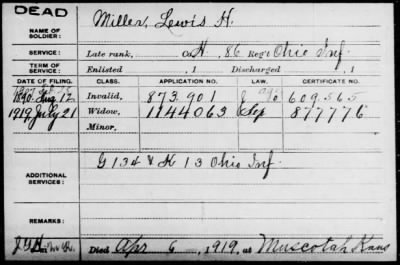 DEAD
Miller, Lewis H.
NAME OF
SOLDIER:
SERVICE:
Late rank, Co. H, 86 Reg't Ohio Inf.
TERM OF
SERVICE:
Enlisted , 1 Discharged , 1
DATE OF FILING. CLASS. APPLICATION NO. CERTIFICATE NO.
1890 Aug 12 Invalid, 873.901 609.565
1919 July 21 Widow, 1144063 877776
Minor,
G 134 & K 13 Ohio Inf.
ADDITIONAL
SERVICES:
REMARKS:
Died Apr 6, 1919, at Muscotah Kans